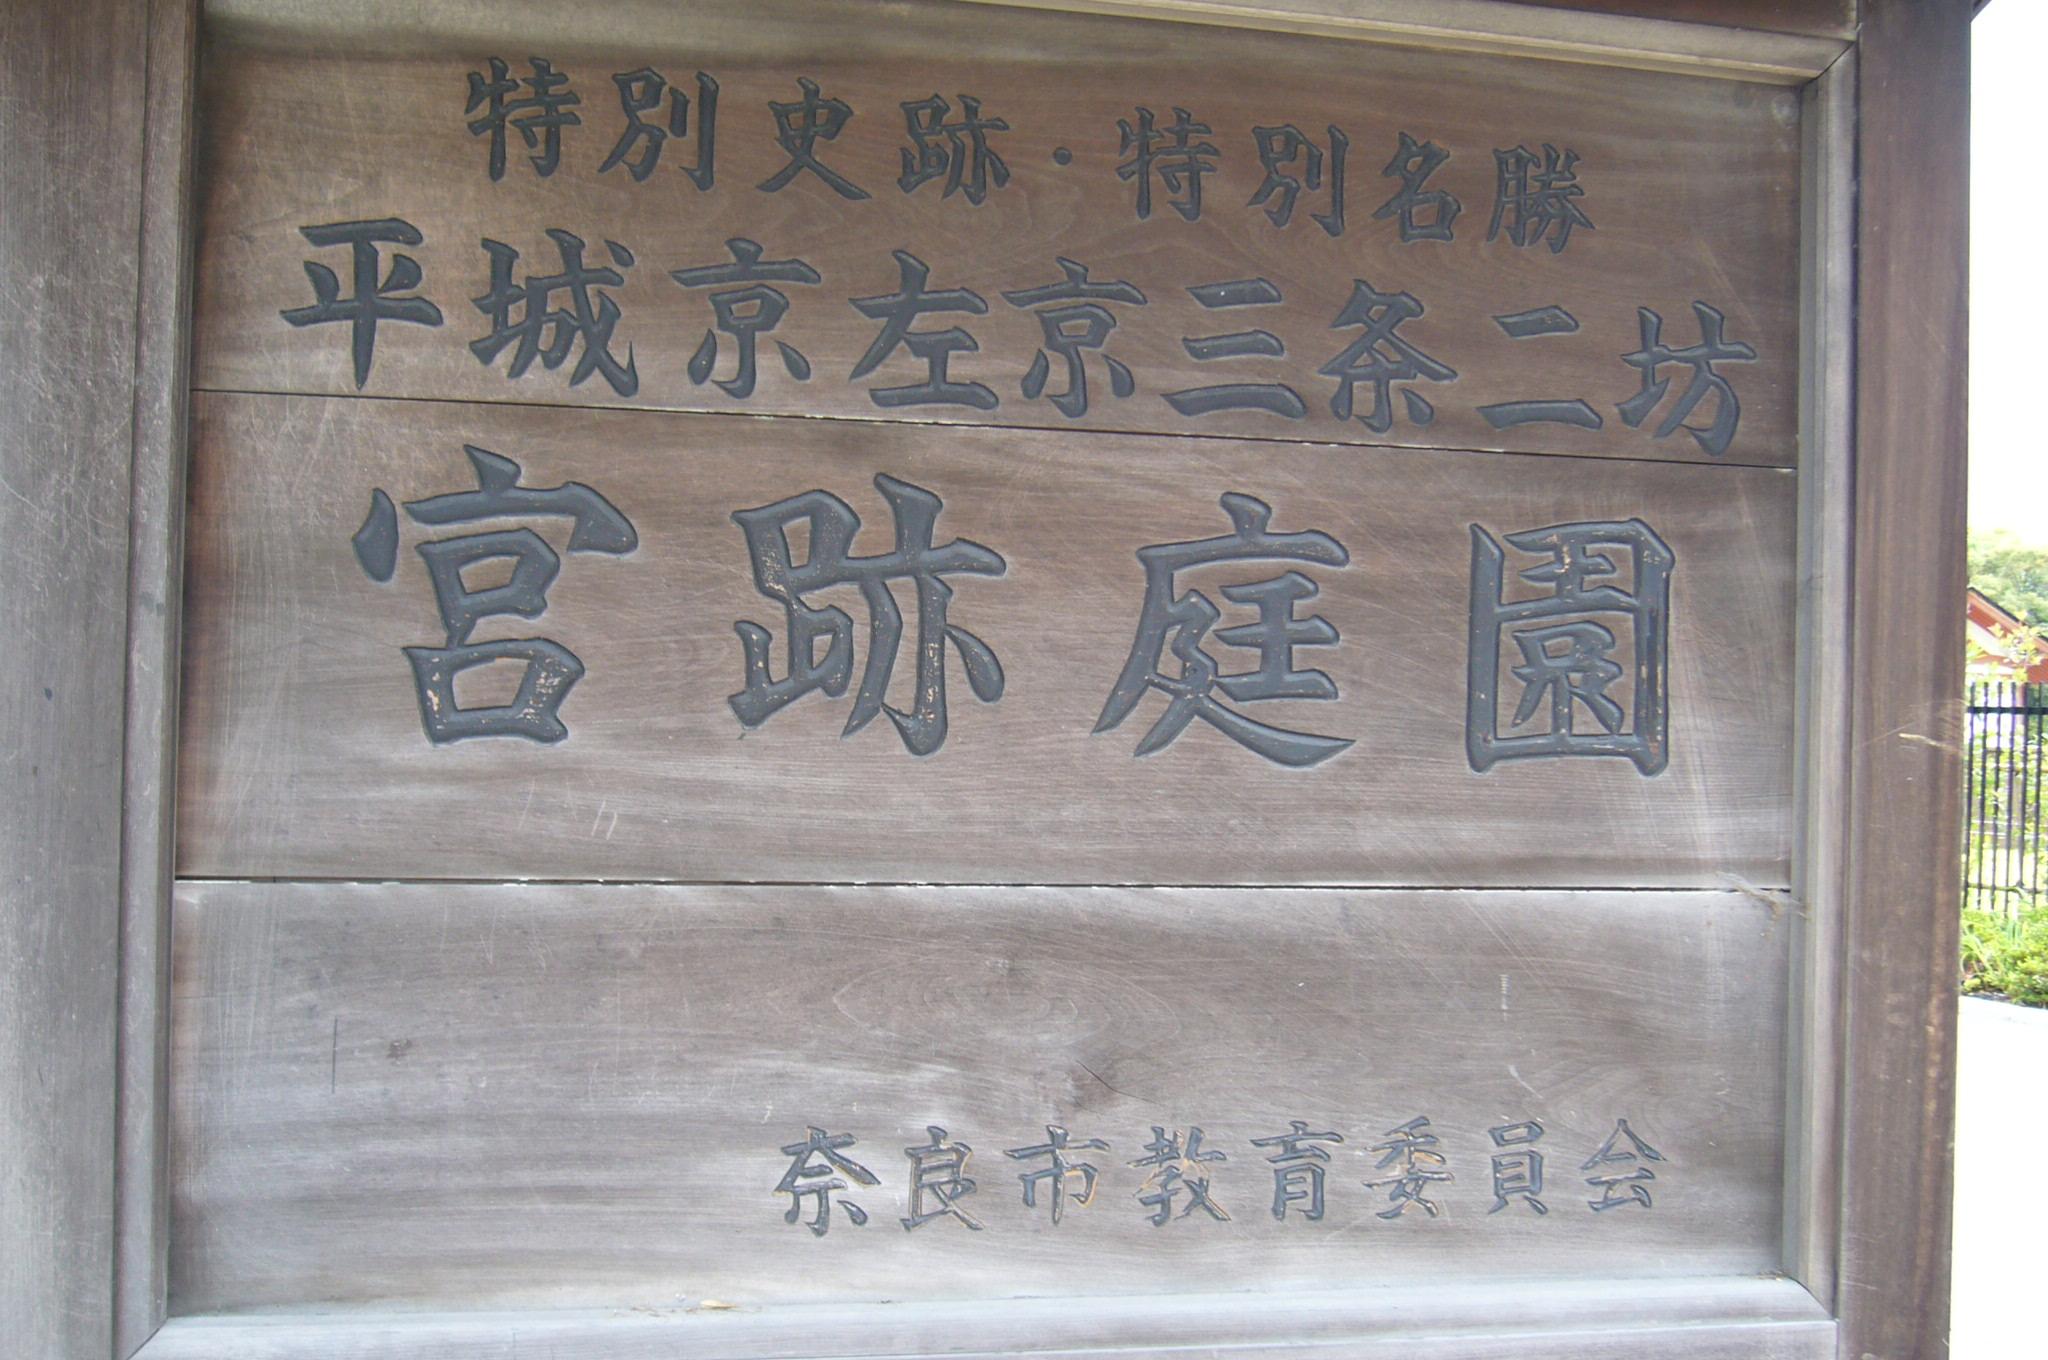 特別史跡・特別名勝
平城京左京三条二坊
宮跡庭園
奈良市教育委員会